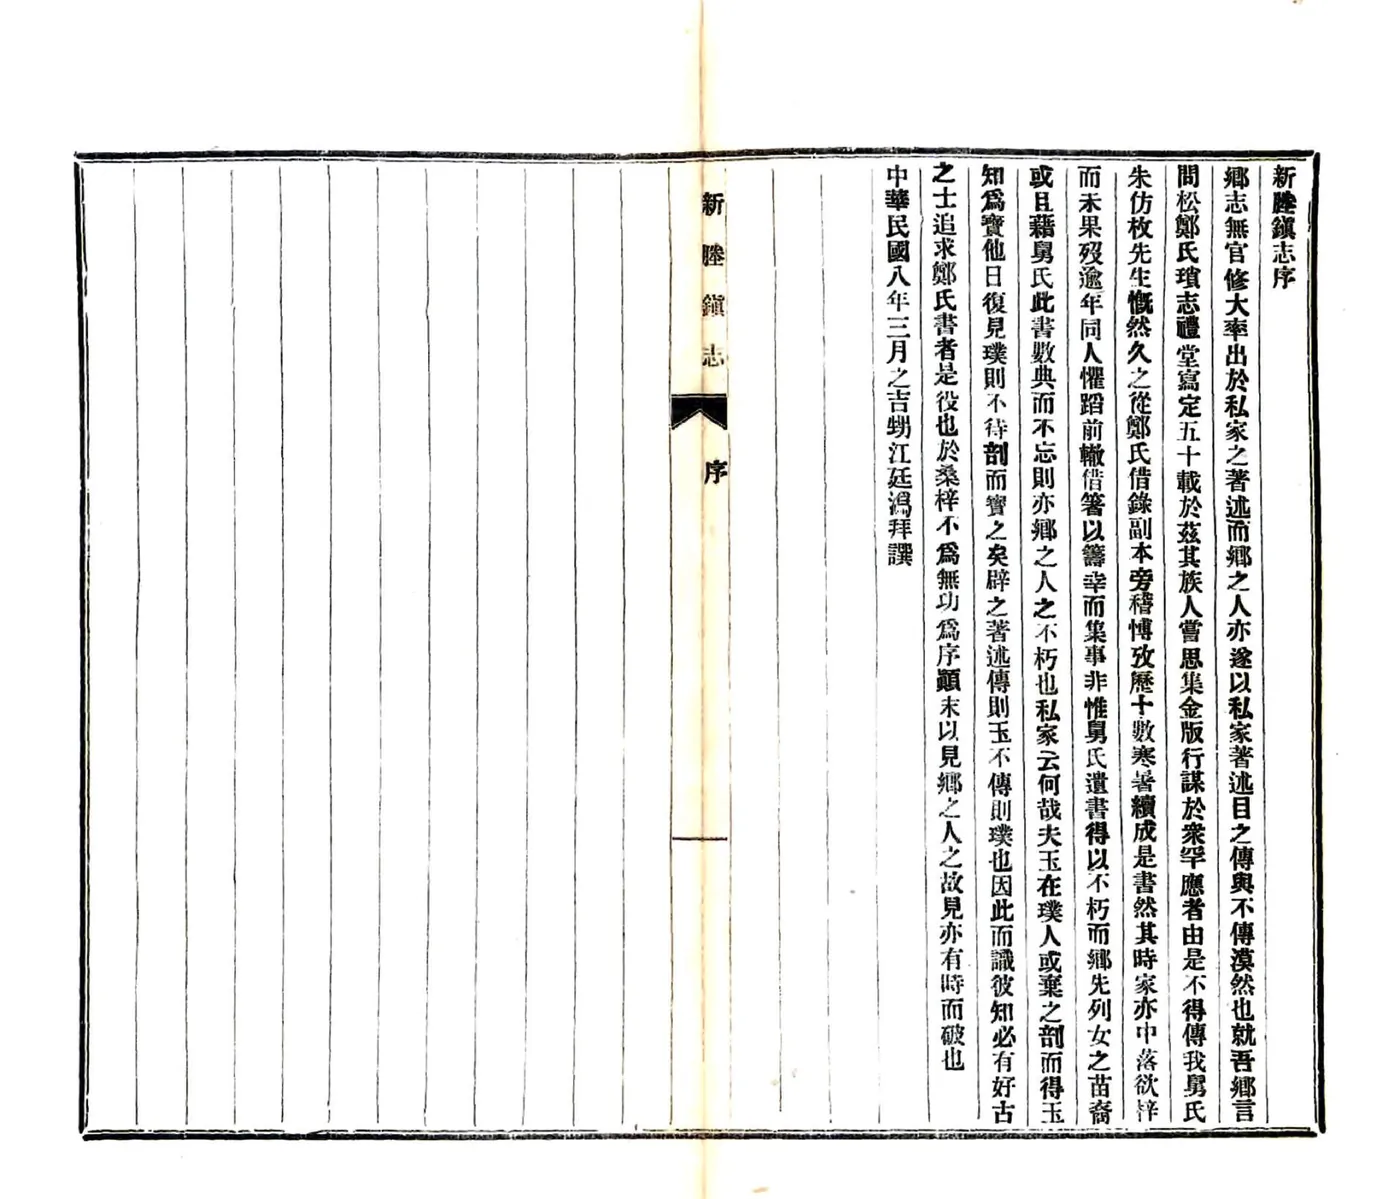 新塍鎭志序
鄕志無官修大率出於私家之著述而鄕之人亦遂以私家著述目之傳與不傳漠然也就吾鄕言
問松鄭氏瑣志禮堂寫定五十載於茲其族人嘗思集金版行謀於衆罕應者由是不得傳我舅氏
朱仿枚先生慨然久之從鄭氏借錄副本旁稽博攷歷十數寒暑續成是書然其時家亦中落欲梓
而未果歿逾年同人懼蹈前轍借箸以籌幸而集事非惟舅氏遺書得以不朽而鄕先列女之苗裔
或且藉舅氏此書數典而不忘則亦鄕之人之不朽也私家云何哉夫玉在璞人或棄之剖而得玉
知爲寶他日復見璞則不待剖而寶之矣辟之著述傳則玉不傳則璞也因此而識彼知必有好古
之士追求鄭氏書者是役也於桑梓不爲無功爲序顚末以見鄕之人之故見亦有時而破也
中華民國八年三月之吉甥江廷鴻拜譔
新塍鎭志
序